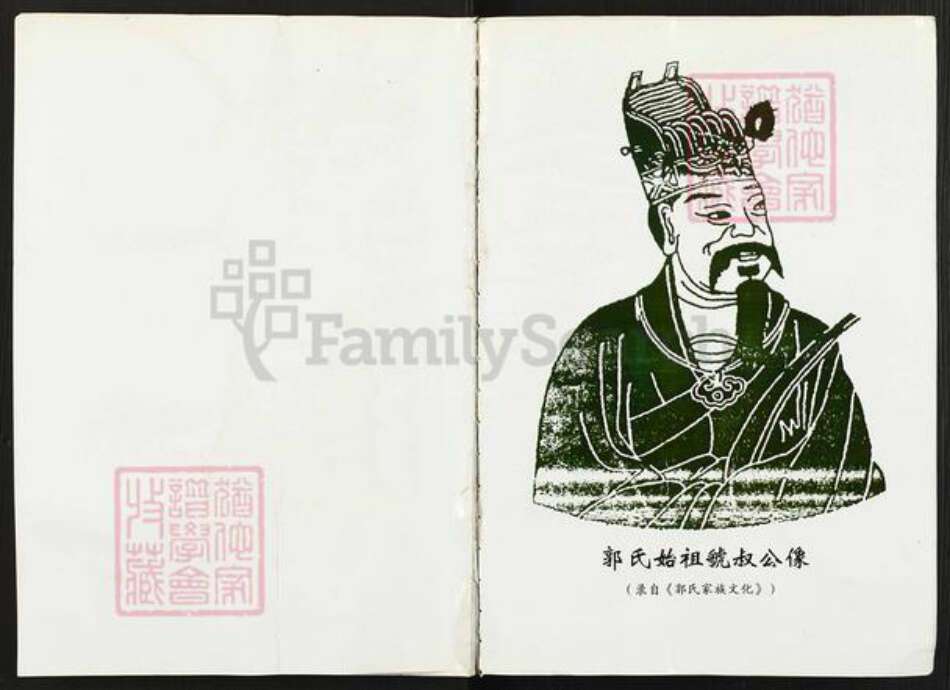 郭氏始祖虢叔公像
（录自《郭氏家族文化》）
FamilySearch
猶他家
譜學會
收藏
猶他家
譜學會
收藏